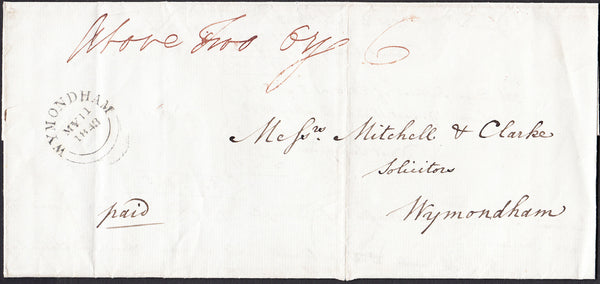 Above Two Oz 6
WYMONDHAM
MY 11
1843
Messrs. Mitchell & Clarke
Solicitors
Wymondham
paid